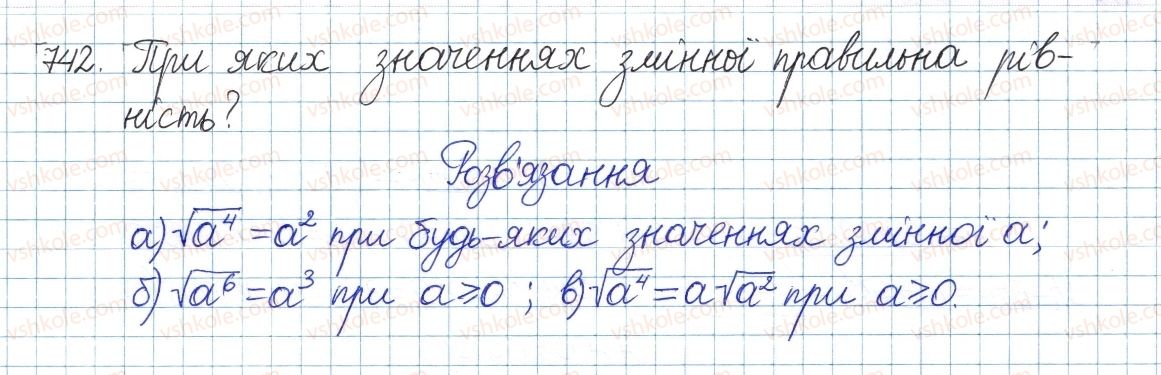 742. При яких значеннях змінної правильна рів-
ність?
Розв'язання
а) √a⁴ = a² при будь-яких значеннях змінної a;
б) √a⁶ = a³ при a ⩾ 0 ; в) √a⁴ = a√a² при a ⩾ 0.